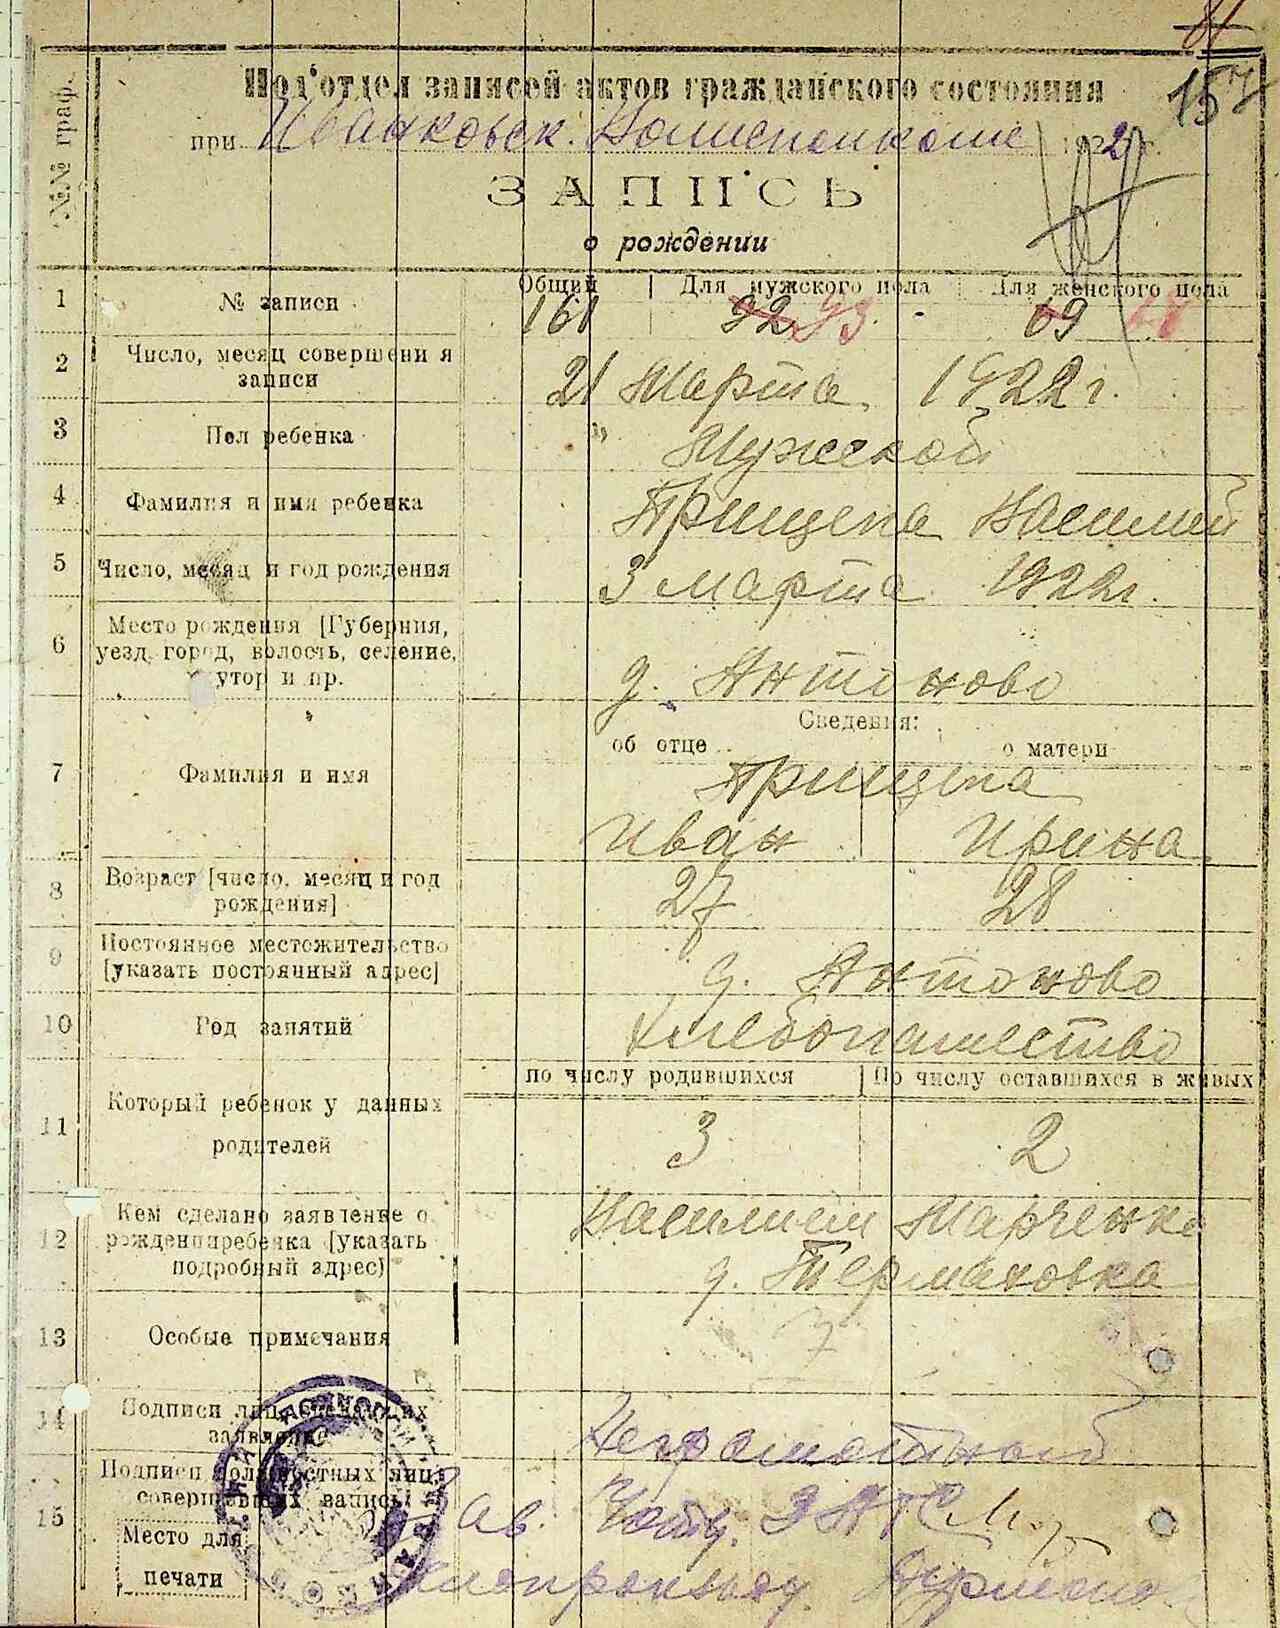 81
157
№№ граф.
Под'отдел записей актов гражданского состояния
при Иванковск. Волисполкоме 1922 г.
ЗАПИСЬ
о рождении
1 № записи Общий 161 Для мужского пола 92 93 Для женского пола 69 68
2 Число, месяц совершения записи 21 Марта 1922 г.
3 Пол ребенка " Мужской
4 Фамилия и имя ребенка Прищепа Василий
5 Число, месяц и год рождения 3 марта 1922 г.
6 Место рождения [Губерния,
уезд, город, волость, селение,
хутор и пр. д. Антоново
Сведения:
об отце о матери
7 Фамилия и имя Прищепа
Иван Ирина
8 Возраст [число, месяц и год
рождения] 27 28
9 Постоянное местожительство
[указать постоянный адрес] д. Антоново
10 Род занятий Хлебопашество
по числу родившихся По числу оставшихся в живых
11 Который ребенок у данных
родителей 3 2
12 Кем сделано заявление о
рождении ребенка [указать
подробный адрес) Василием Марченко
д. Термаховка
13 Особые примечания
14 Подписи лиц, сделающих
заявление Неграмотный
15 Подписи должностных лиц,
совершивших запись Зав. ЗАГС
Место для
печати Делопроизвод.